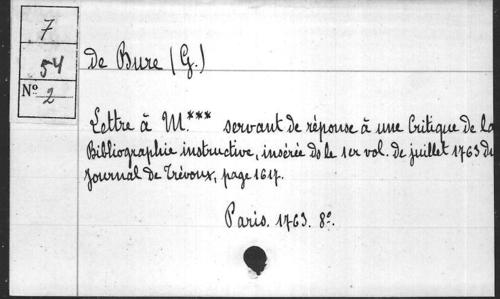 7
54
Nº 2
de Bure (G.)
Lettre à M.*** servant de réponse à une Critique de la
Bibliographie instructive, insérée ds le 1er vol. de juillet 1763 du
Journal de Trévoux, page 1617.
Paris. 1763. 8º.